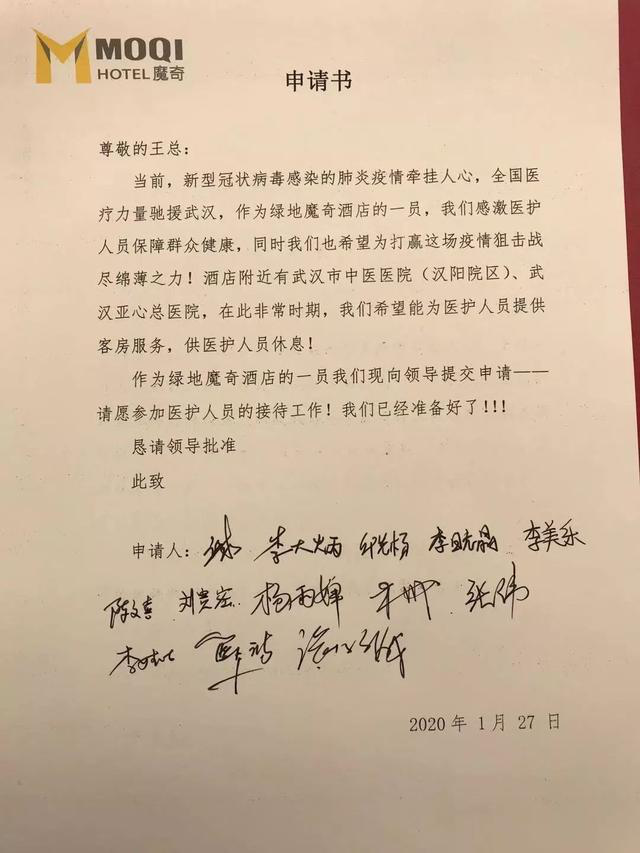 MOQI
HOTEL魔奇
申请书
尊敬的王总：
当前，新型冠状病毒感染的肺炎疫情牵挂人心，全国医
疗力量驰援武汉，作为绿地魔奇酒店的一员，我们感激医护
人员保障群众健康，同时我们也希望为打赢这场疫情狙击战
尽绵薄之力！酒店附近有武汉市中医医院（汉阳院区）、武
汉亚心总医院，在此非常时期，我们希望能为医护人员提供
客房服务，供医护人员休息！
作为绿地魔奇酒店的一员我们现向领导提交申请——
请愿参加医护人员的接待工作！我们已经准备好了!!!
恳请领导批准
此致
申请人： 李大炳 李美乐
陈文喜 刘贵宏 杨雨婵 张伟
2020 年 1 月 27 日